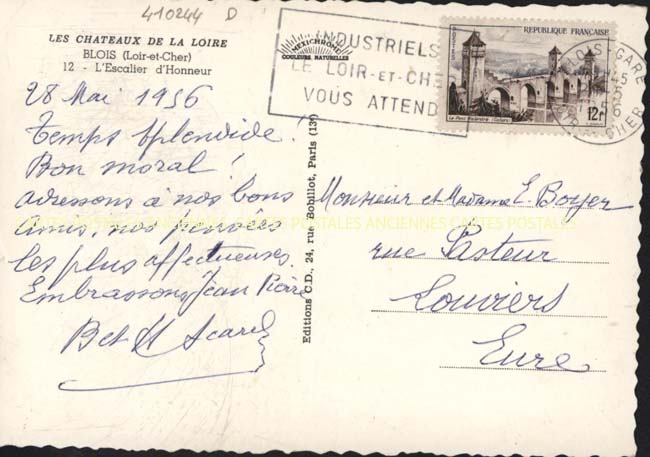 410244 D
LES CHATEAUX DE LA LOIRE
BLOIS (Loir-et-Cher)
12 - L'Escalier d'Honneur
28 Mai 1956
Temps splendide !
Bon moral !
adressons à nos bons
amis, nos pensées
les plus affectueuses.
Embrassons Jean Pierre
MEXICHROME
COULEURS NATURELLES
INDUSTRIELS
LE LOIR-ET-CHE
VOUS ATTEND
REPUBLIQUE FRANÇAISE
Le Pont Valentré - Cahors
12f
BLOIS GARE
CHER
Editions C.D., 24, rue Bobillot, Paris (13e)
Monsieur et Madame E.
rue Pasteur
Louviers
Eure
CARTES POSTALES ANCIENNES CARTES POSTALES ANCIENNES CARTES POSTALES